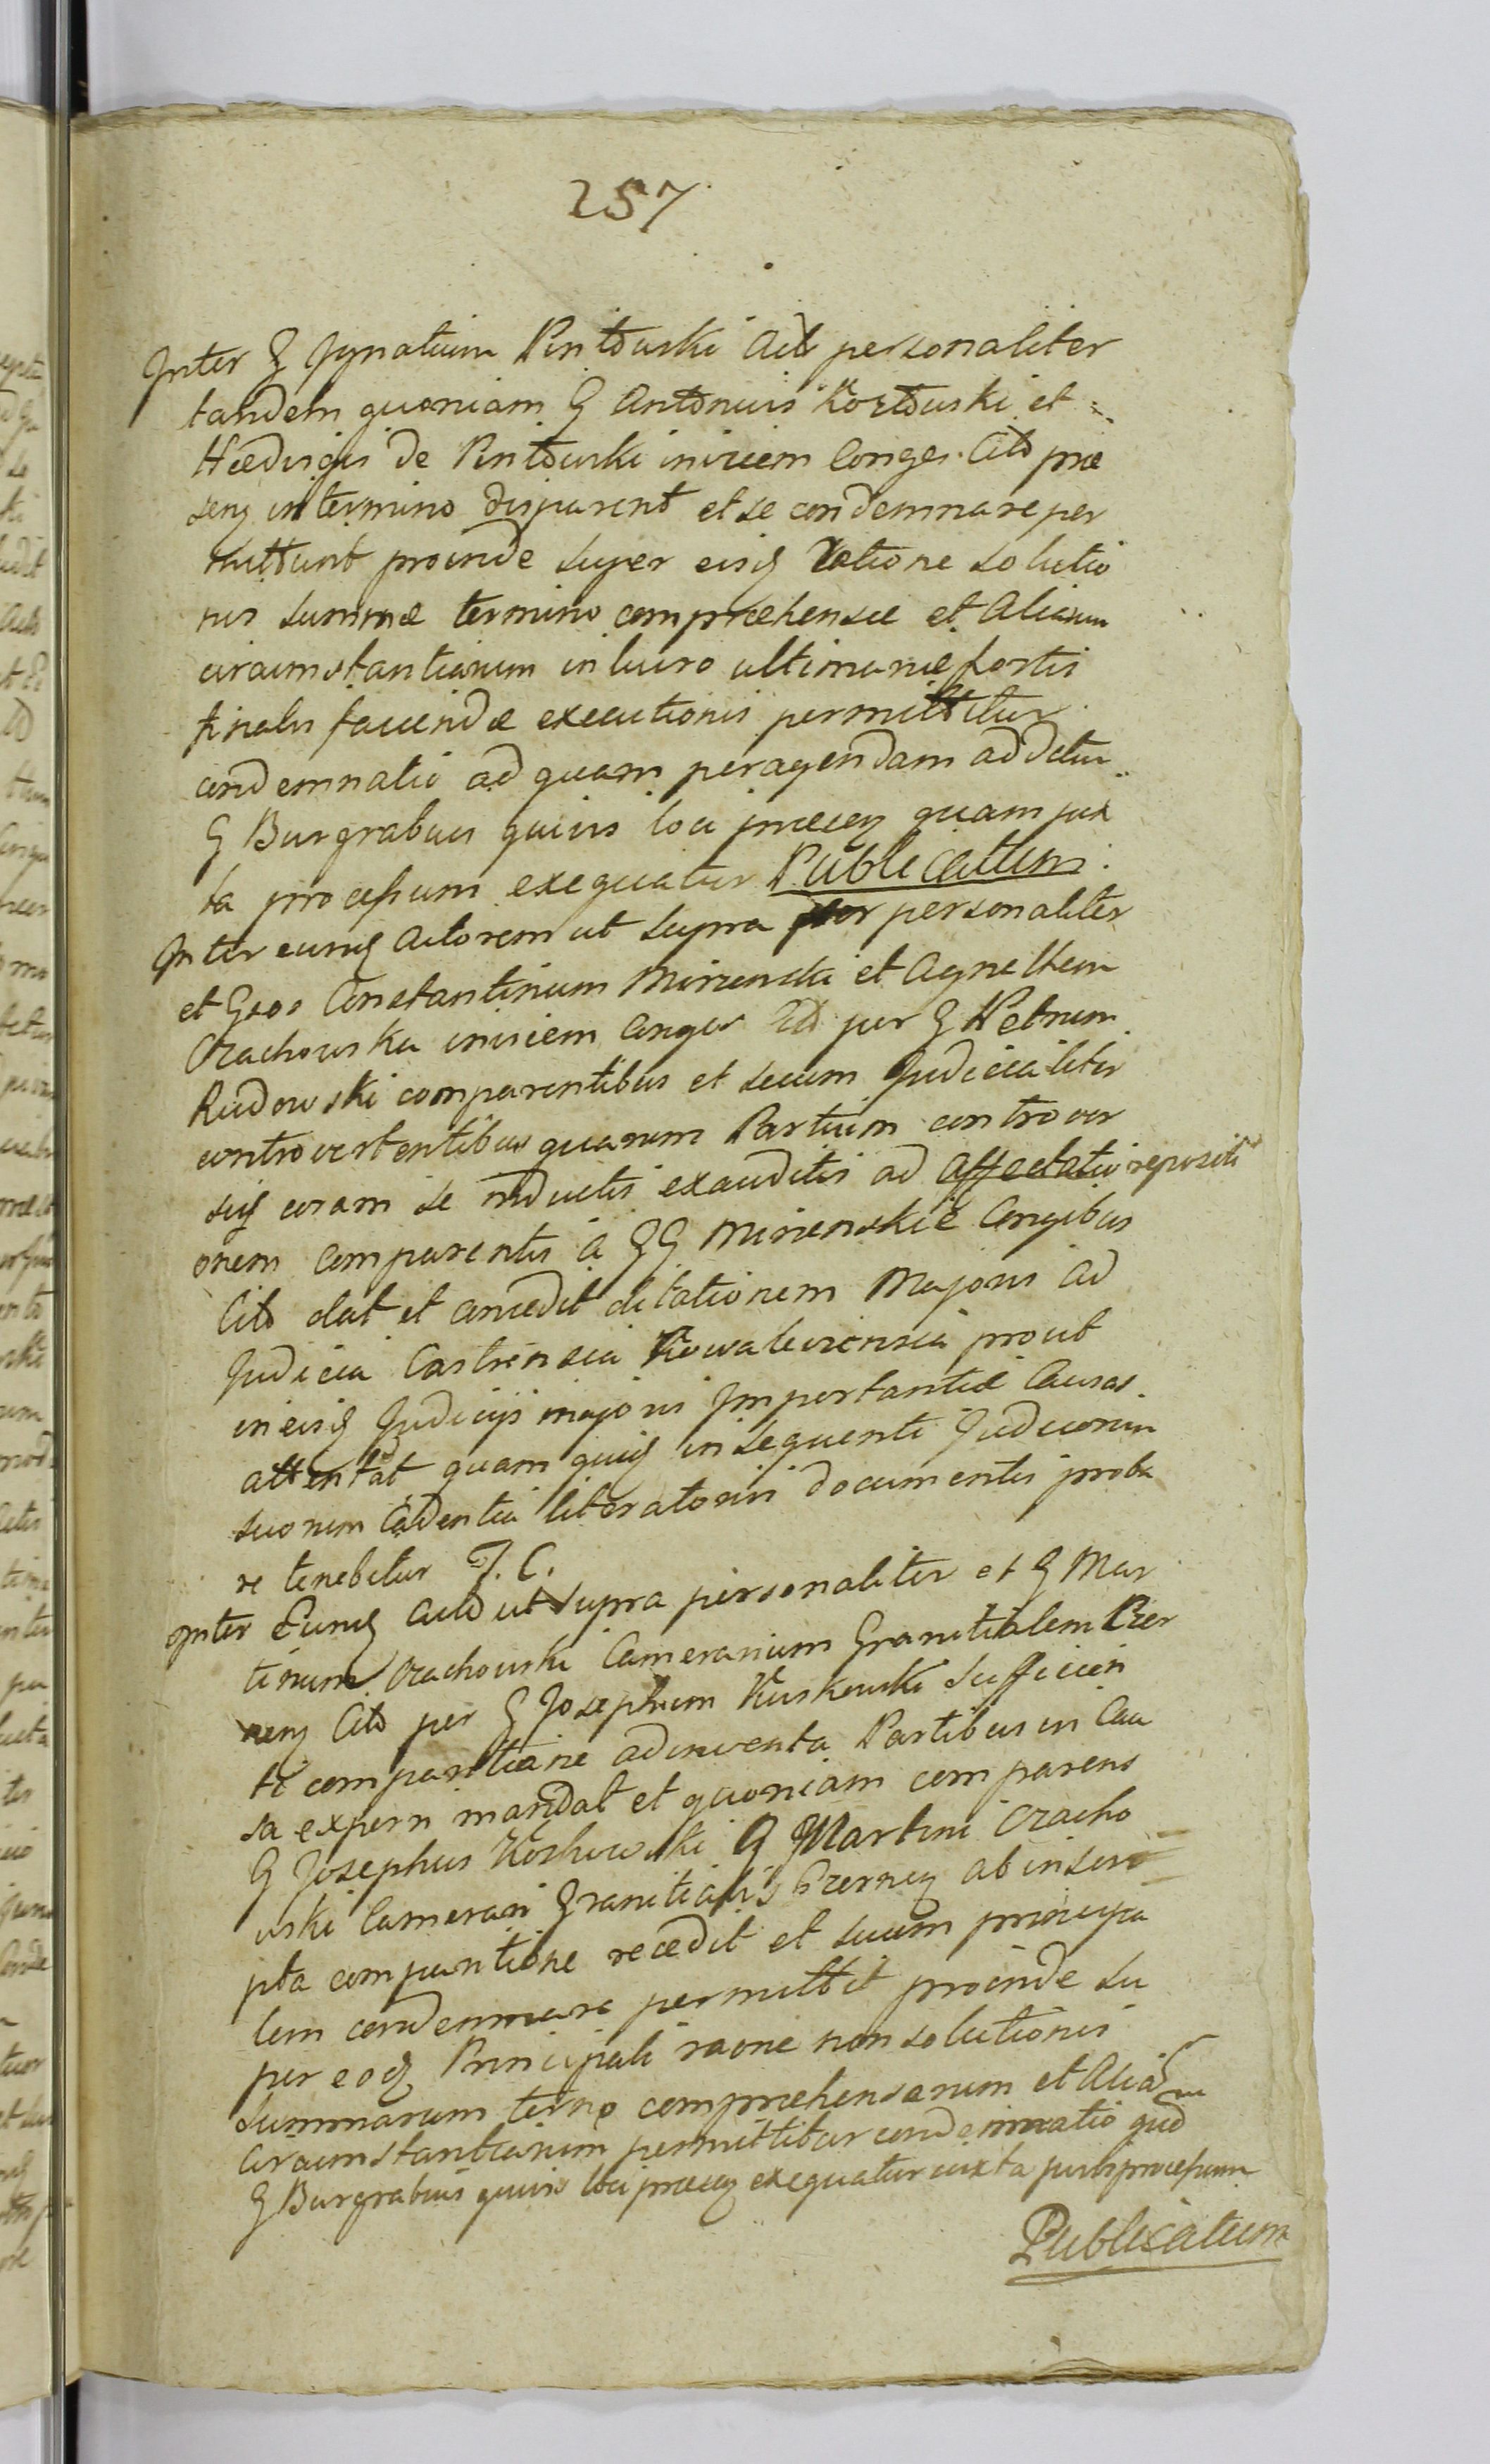 257
Inter G Ignatium Pintowski Act personaliter
tandem quoniam G Antonius Koztowski et
Hædvigis de Pintowski invicem Conges. Citt præ
senz in termino disparent et se condemnare per
mittunt proinde super eisq Ratione solutio
nis summæ termino compræhensæ et Aliarum
circumstantiarum in lucro ultimariæ fortis
finalis faciendæ executionis permittitur
condemnatio ad quam peragendam addetur
G Burgrabius quivis loci præcen quam jux
ta processum exequatur Publicatum.
Inter eunq Actorem ut supra personaliter
et Gsos Constantinum Mirzenski et Agnethem
Orachowska invicem Conges Citt per G Petrum
Rudowski comparentibus et secum Judicialiter
controvertentibus quarum Partium controver
sijs coram se inductis exauditis ad affectatio repositi
onem Comparentis a GG Mirzenskie Congibus
Citt dat et concedit dilationem Majoris ad
Judicia Castrensia Kowaleviensia prout
in eisq Judicijs majoris Importantiæ Causas
attentat quam quiq in sequenti Judiciorum
suorum Cadentia literatoriis documentis proba
re tenebitur J. C.
Inter Eunq Actt ut supra personaliter et G Mar
tinum Orachowski Camerarium Granitialem Brer
nenz Citt per G Josephum Kuskowski sufficien
ti compartione adinventa Partibus in Cau
sa experiri mandat et quoniam comparens
G Josephus Koskowski G Martini Oracho
wski Camerarii Granitialis Brernenz ab inscri
pta compartione recedit et suum principa
lem condemnare permittit proinde su
per eoq Principali raone non solutionis
summarum terno compræhensarum et Aliar
Circumstantiarum permittitur condemnatio quod
G Burgrabius quivis loci præcen exequatur iuxta juris processum
Publicatum